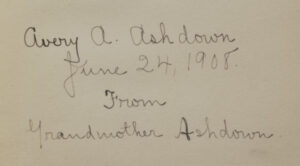 Avery A. Ashdown
June 24, 1908.
From
Grandmother Ashdown.